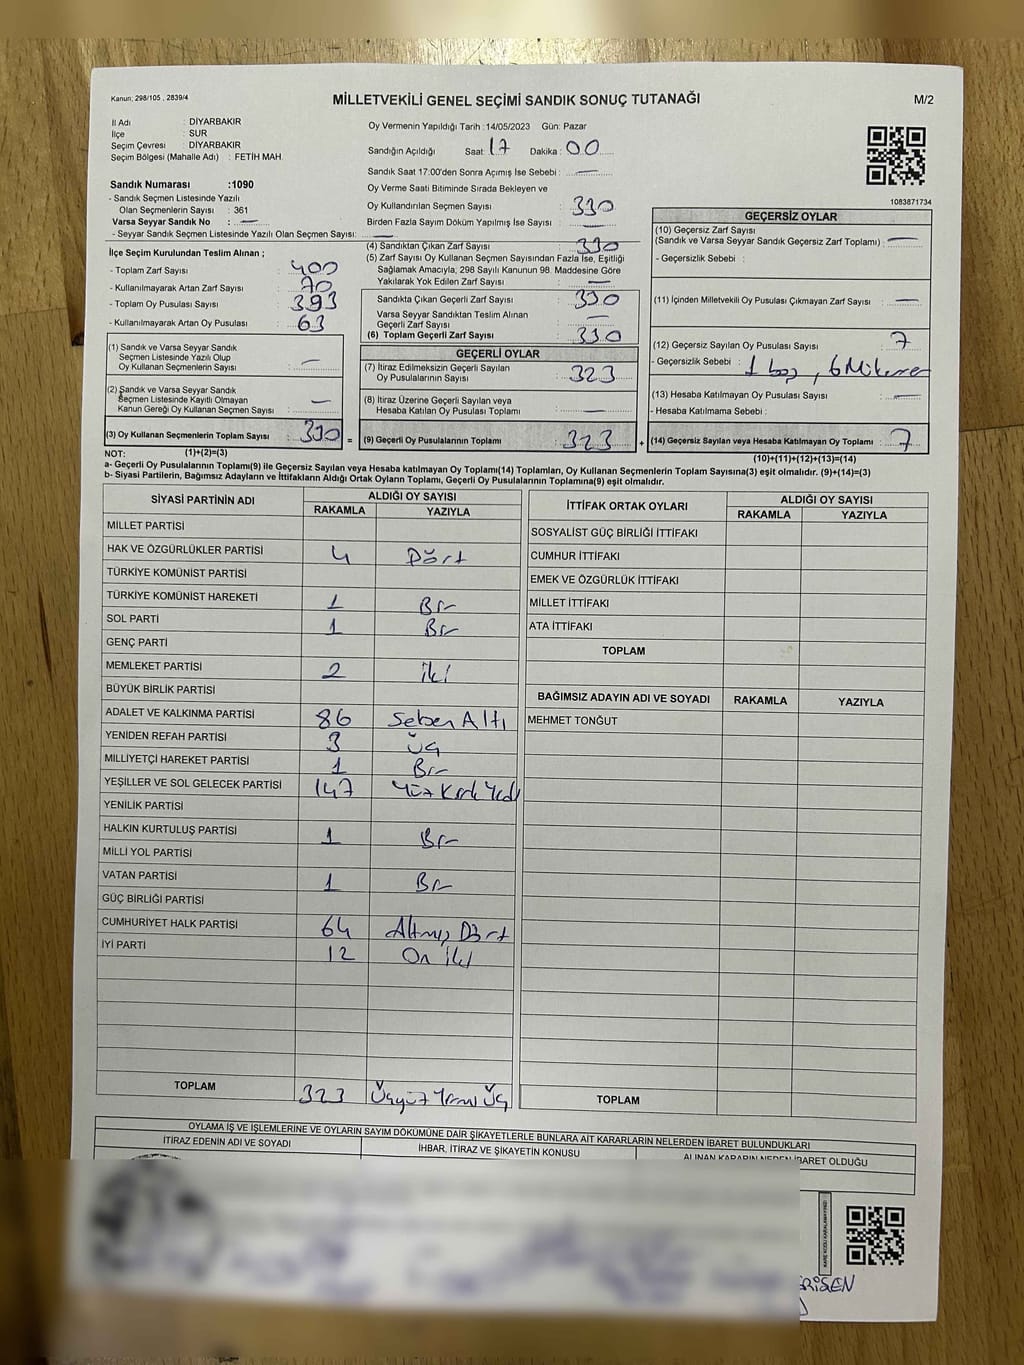 Kanun: 298/105 , 2839/4
MİLLETVEKİLİ GENEL SEÇİMİ SANDIK SONUÇ TUTANAĞI
M/2
İl Adı : DİYARBAKIR
İlçe : SUR
Seçim Çevresi : DİYARBAKIR
Seçim Bölgesi (Mahalle Adı) : FETİH MAH.
Sandık Numarası :1090
- Sandık Seçmen Listesinde Yazılı
Olan Seçmenlerin Sayısı : 361
Varsa Seyyar Sandık No : —
- Seyyar Sandık Seçmen Listesinde Yazılı Olan Seçmen Sayısı: —
Oy Vermenin Yapıldığı Tarih :14/05/2023 Gün: Pazar
Sandığın Açıldığı Saat: 17 Dakika: 00
Sandık Saat 17:00'den Sonra Açımış İse Sebebi : —
Oy Verme Saati Bitiminde Sırada Bekleyen ve
Oy Kullandırılan Seçmen Sayısı : 330
Birden Fazla Sayım Döküm Yapılmış İse Sayısı : —
1083871734
İlçe Seçim Kurulundan Teslim Alınan ;
- Toplam Zarf Sayısı : 400
- Kullanılmayarak Artan Zarf Sayısı : 70
- Toplam Oy Pusulası Sayısı : 393
- Kullanılmayarak Artan Oy Pusulası : 63
(1) Sandık ve Varsa Seyyar Sandık
Seçmen Listesinde Yazılı Olup
Oy Kullanan Seçmenlerin Sayısı : —
(2) Sandık ve Varsa Seyyar Sandık
Seçmen Listesinde Kayıtlı Olmayan
Kanun Gereği Oy Kullanan Seçmen Sayısı : —
(3) Oy Kullanan Seçmenlerin Toplam Sayısı : 330 =
(4) Sandıktan Çıkan Zarf Sayısı : 330
(5) Zarf Sayısı Oy Kullanan Seçmen Sayısından Fazla İse, Eşitliği
Sağlamak Amacıyla; 298 Sayılı Kanunun 98. Maddesine Göre
Yakılarak Yok Edilen Zarf Sayısı : —
Sandıkta Çıkan Geçerli Zarf Sayısı : 330
Varsa Seyyar Sandıktan Teslim Alınan
Geçerli Zarf Sayısı : —
(6) Toplam Geçerli Zarf Sayısı : 330
GEÇERLİ OYLAR
(7) İtiraz Edilmeksizin Geçerli Sayılan
Oy Pusulalarının Sayısı : 323
(8) İtiraz Üzerine Geçerli Sayılan veya
Hesaba Katılan Oy Pusulası Toplamı : —
(9) Geçerli Oy Pusulalarının Toplamı : 323 +
GEÇERSİZ OYLAR
(10) Geçersiz Zarf Sayısı
(Sandık ve Varsa Seyyar Sandık Geçersiz Zarf Toplamı) : —
- Geçersizlik Sebebi :
(11) İçinden Milletvekili Oy Pusulası Çıkmayan Zarf Sayısı : —
(12) Geçersiz Sayılan Oy Pusulası Sayısı : 7
- Geçersizlik Sebebi : 1 boş, 6
(13) Hesaba Katılmayan Oy Pusulası Sayısı : —
- Hesaba Katılmama Sebebi :
(14) Geçersiz Sayılan veya Hesaba Katılmayan Oy Toplamı : 7
NOT: (1)+(2)=(3) (10)+(11)+(12)+(13)=(14)
a- Geçerli Oy Pusulalarının Toplamı(9) ile Geçersiz Sayılan veya Hesaba katılmayan Oy Toplamı(14) Toplamları, Oy Kullanan Seçmenlerin Toplam Sayısına(3) eşit olmalıdır. (9)+(14)=(3)
b- Siyasi Partilerin, Bağımsız Adayların ve İttifakların Aldığı Ortak Oyların Toplamı, Geçerli Oy Pusulalarının Toplamına(9) eşit olmalıdır.
SİYASİ PARTİNİN ADI ALDIĞI OY SAYISI
RAKAMLA YAZIYLA
MİLLET PARTİSİ
HAK VE ÖZGÜRLÜKLER PARTİSİ 4 Dört
TÜRKİYE KOMÜNİST PARTİSİ
TÜRKİYE KOMÜNİST HAREKETİ 1 Bir
SOL PARTİ 1 Bir
GENÇ PARTİ
MEMLEKET PARTİSİ 2 İki
BÜYÜK BİRLİK PARTİSİ
ADALET VE KALKINMA PARTİSİ 86 Seksen Altı
YENİDEN REFAH PARTİSİ 3 Üç
MİLLİYETÇİ HAREKET PARTİSİ 1 Bir
YEŞİLLER VE SOL GELECEK PARTİSİ 147 Yüz Kırk Yedi
YENİLİK PARTİSİ
HALKIN KURTULUŞ PARTİSİ 1 Bir
MİLLİ YOL PARTİSİ
VATAN PARTİSİ 1 Bir
GÜÇ BİRLİĞİ PARTİSİ
CUMHURİYET HALK PARTİSİ 64 Altmış Dört
İYİ PARTİ 12 On İki
TOPLAM 323 Üçyüz Yirmi Üç
İTTİFAK ORTAK OYLARI ALDIĞI OY SAYISI
RAKAMLA YAZIYLA
SOSYALİST GÜÇ BİRLİĞİ İTTİFAKI
CUMHUR İTTİFAKI
EMEK VE ÖZGÜRLÜK İTTİFAKI
MİLLET İTTİFAKI
ATA İTTİFAKI
TOPLAM
BAĞIMSIZ ADAYIN ADI VE SOYADI RAKAMLA YAZIYLA
MEHMET TONĞUT
TOPLAM
OYLAMA İŞ VE İŞLEMLERİNE VE OYLARIN SAYIM DÖKÜMÜNE DAİR ŞİKAYETLERLE BUNLARA AİT KARARLARIN NELERDEN İBARET BULUNDUKLARI
İTİRAZ EDENİN ADI VE SOYADI
İHBAR, İTİRAZ VE ŞİKAYETİN KONUSU
ALINAN KARARIN NEDEN İBARET OLDUĞU